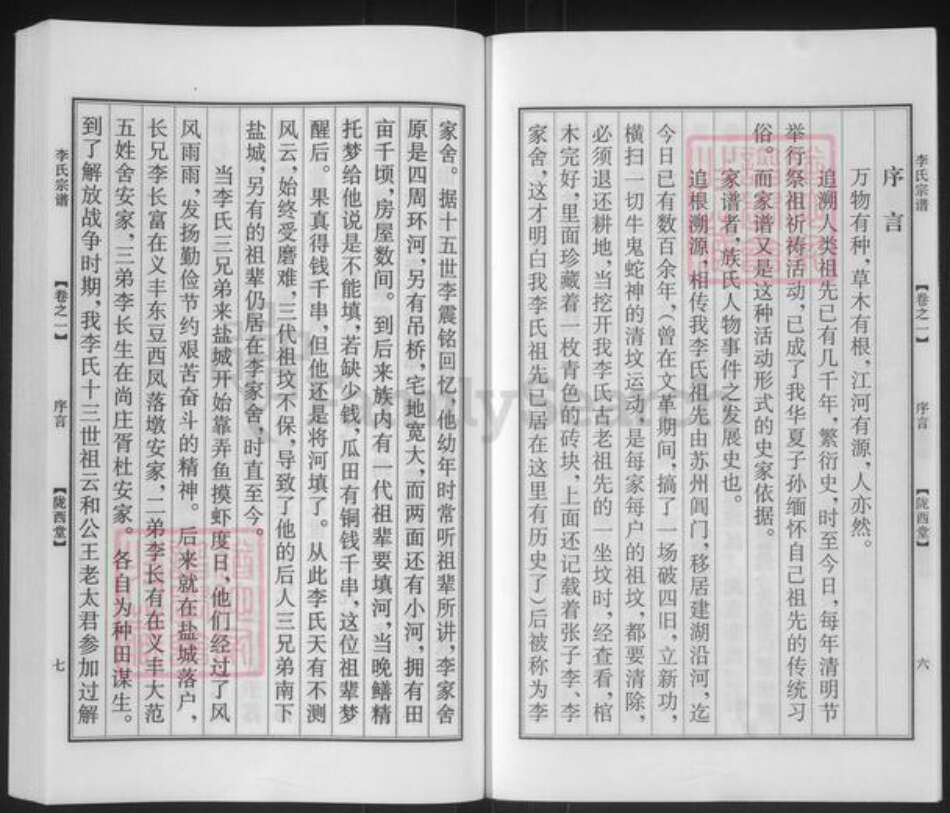 李氏宗谱 【卷之一】 序言 【陇西堂】 六
序言
万物有种，草木有根，江河有源，人亦然。
追溯人类祖先已有几千年，繁衍史，时至今日，每年清明节
举行祭祖祈祷活动，已成了我华夏子孙缅怀自己祖先的传统习
俗。而家谱又是这种活动形式的史家依据。
家谱者，族氏人物事件之发展史也。
追根溯源，相传我李氏祖先由苏州阊门，移居建湖沿河，迄
今日已有数百余年，（曾在文革期间，搞了一场破四旧，立新功，
横扫一切牛鬼蛇神的清坟运动，是每家每户的祖坟，都要清除，
必须退还耕地，当挖开我李氏古老祖先的一坐坟时，经查看，棺
木完好，里面珍藏着一枚青色的砖块，上面还记载着张子李、李
家舍，这才明白我李氏祖先已居在这里有历史了）后被称为李
家舍。据十五世李震铭回忆，他幼年时常听祖辈所讲，李家舍
原是四周环河，另有吊桥，宅地宽大，而两面还有小河，拥有田
亩千顷，房屋数间。到后来族内有一代祖辈要填河，当晚鳝精
托梦给他说是不能填，若缺少钱，瓜田有铜钱千串，这位祖辈梦
醒后。果真得钱千串，但他还是将河填了。从此李氏天有不测
风云，始终受磨难，三代祖坟不保，导致了他的后人三兄弟南下
盐城，另有的祖辈仍居在李家舍，时直至今。
当李氏三兄弟来盐城开始靠弄鱼摸虾度日，他们经过了风
风雨雨，发扬勤俭节约艰苦奋斗的精神。后来就在盐城落户，
长兄李长富在义丰东豆西风落墩安家，二弟李长有在义丰大范
五姓舍安家，三弟李长生在尚庄胥杜安家。各自为种田谋生。
到了解放战争时期，我李氏十三世祖云和公王老太君参加过解
李氏宗谱 【卷之一】 序言 【陇西堂】 七
FamilySearch